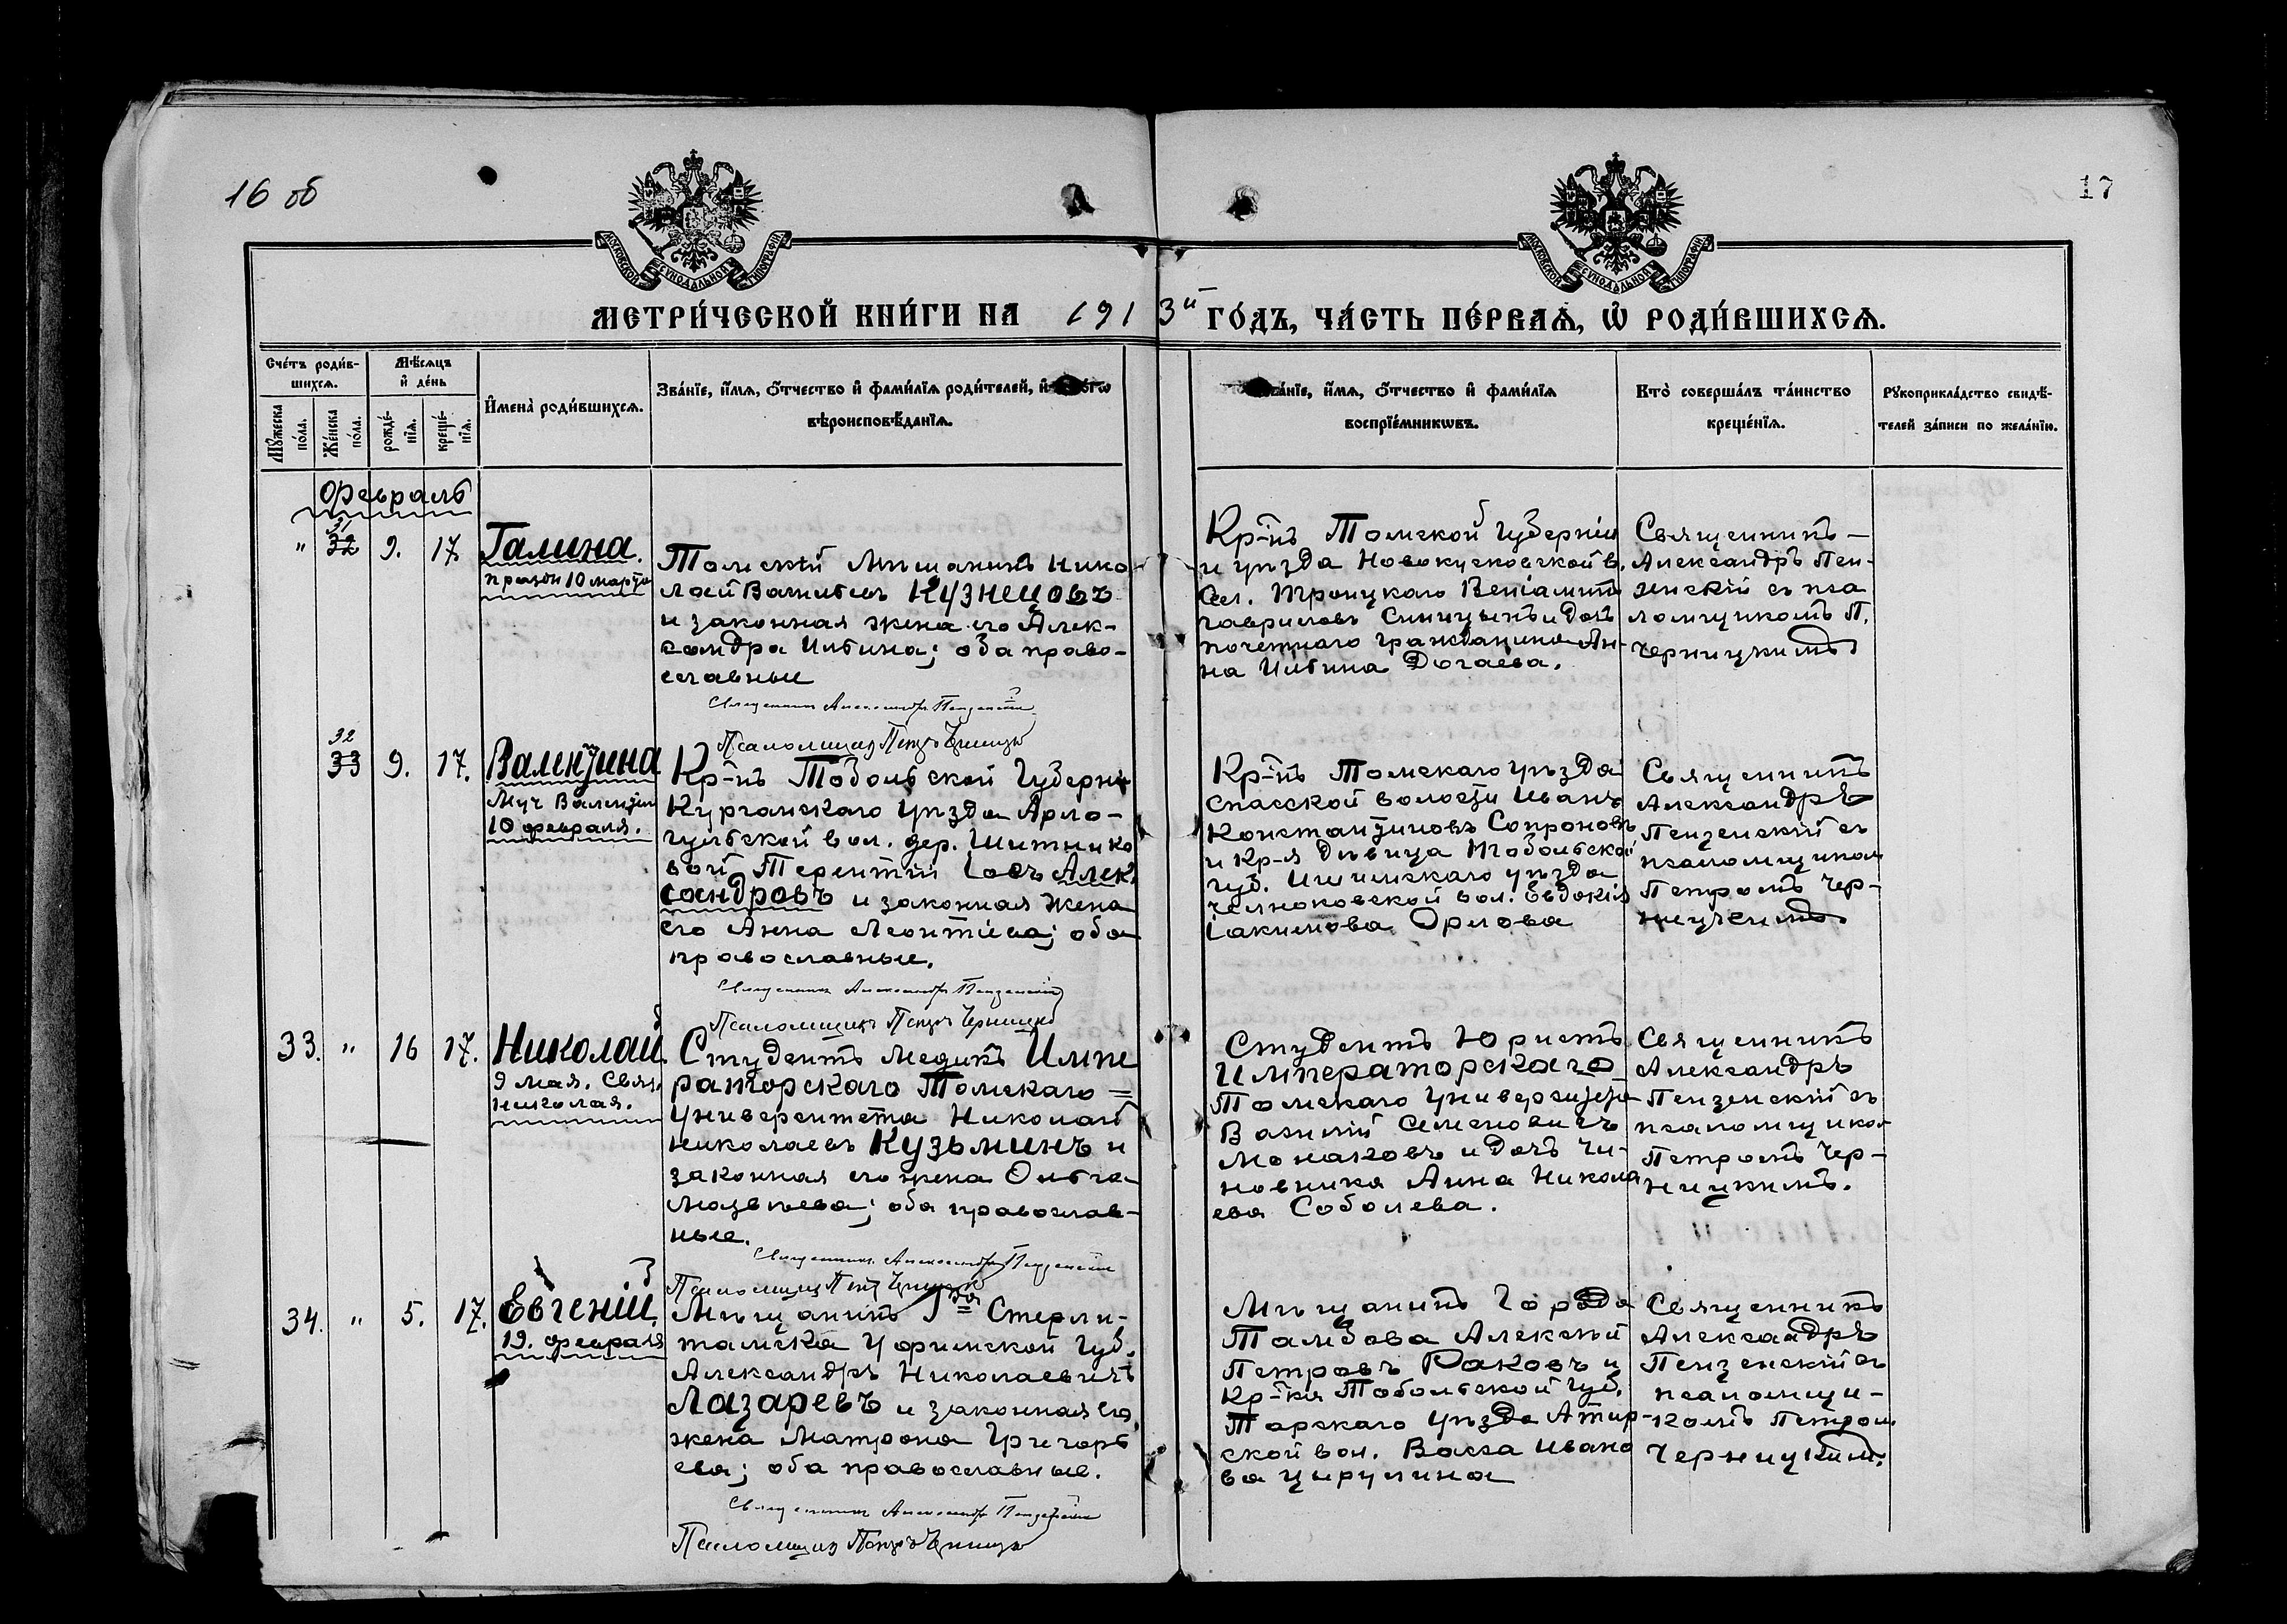 16 об
17
МОСКОВСКОЙ СѴНОДАЛЬНОЙ ТИПОГРАФІИ
МОСКОВСКОЙ СѴНОДАЛЬНОЙ ТИПОГРАФІИ
МЕТРИ́ЧЕСКОЙ КНИ́ГИ НА 1913й ГО́ДЪ, ЧА́СТЬ ПЕ́РВАѦ, Ѽ РОДИ́ВШИХСѦ.
Сче́тъ роди́в-
шихсѧ.
Мѣ́сѧцъ
и҆ де́нь
Мꙋ́жеска
по́ла.
Же́нска
по́ла.
рожде́-
нїѧ.
креще́-
нїѧ.
И҆мена̀ роди́вшихсѧ.
Зва́нїе, и҆́мѧ, ѻ҆́тчество и҆ фами́лїѧ роди́телей, и҆
вѣроисповѣ́данїѧ.
Зва́нїе, и҆́мѧ, ѻ҆́тчество и҆ фами́лїѧ
воспрїе́мникѡвъ.
Кто̀ соверша́лъ та́инство
креще́нїѧ.
Рꙋкоприкла́дство свидѣ́-
телей за́писи по жела́нїю.
Февраль
" 31 32 9. 17. Галина.
праздн 10 марта
Томскій Мѣщанинъ Нико-
лай Васильевъ Кузнецовъ
и законная жена его Алек-
сандра Ильина; оба право-
славные
Священникъ Александръ Пензенскій
Псаломщикъ Петръ Черницкій
Кр-нъ Томской Губерніи
и уѣзда Новокусковской в.
Сел. Троицкаго Веніаминъ
Гавриловъ Синицынъ и дочь
почетнаго гражданина Ан-
на Ильина Догаева.
Священникъ —
Александръ Пен-
зенскій съ пса
ломщикомъ П.
Черницкимъ
32 33 9. 17. Валентина
Муч Валентин
10 февраля.
Кр-нъ Тобольской Губерн
Курганскаго уѣзда Арло-
гульской вол. дер. Шитнико
вой Терентій Іовъ Алек
сандровъ и законная жена
его Анна Леонтіева; оба
православные.
Священникъ Александръ Пензенскій
Псаломщикъ Петръ Черницкій
Кр-нъ Томскаго уѣзда
Спасской волости Иванъ
Константиновъ Сопроновъ
и Кр-я дѣвица Тобольской
губ. Ишимскаго уѣзда
Челноковской вол. Евдокія
Іакимова Орлова
Священникъ
Александръ
Пензенскій съ
псаломщиком
Петромъ Чер-
ницкимъ
33. " 16 17. Николай
9 мая. Свят.
Николая.
Студентъ Медикъ Импе
раторскаго Томскаго =
Университета Николай
Николаевъ Кузьминъ и
законная его жена Ольга
Матвѣева; оба православ-
ные.
Священникъ Александръ Пензенскій
Псаломщикъ Петръ Черницкій
Студентъ Юристъ
Императорскаго
Томскаго Университета
Василій Семеновичъ
Монаковъ и дочь Чи-
новника Анна Никола
ева Соболева.
Священникъ
Александръ
Пензенскій съ
псаломщиком
Петромъ Чер-
ницкимъ.
34. " 5. 17. Евгеній
19. февраля
Мѣщанинъ Гда Стерли-
тамска Уфимской Губ.
Александръ Николаевичъ
Лазаревъ и законная его
жена Матрона Григорь
ева; оба православные.
Священникъ Александръ Пензенскій
Псаломщикъ Петръ Черницкій
Мѣщанинъ Города
Тамбова Алексѣй
Петровъ Раковъ и
Кр-ка Тобольской Губ.
Тарскаго уѣзда Атир-
ской вол. Васса Ивано
ва Цирулина
Священникъ
Александръ
Пензенскій съ
псаломщи-
комъ Петром
Черницким.